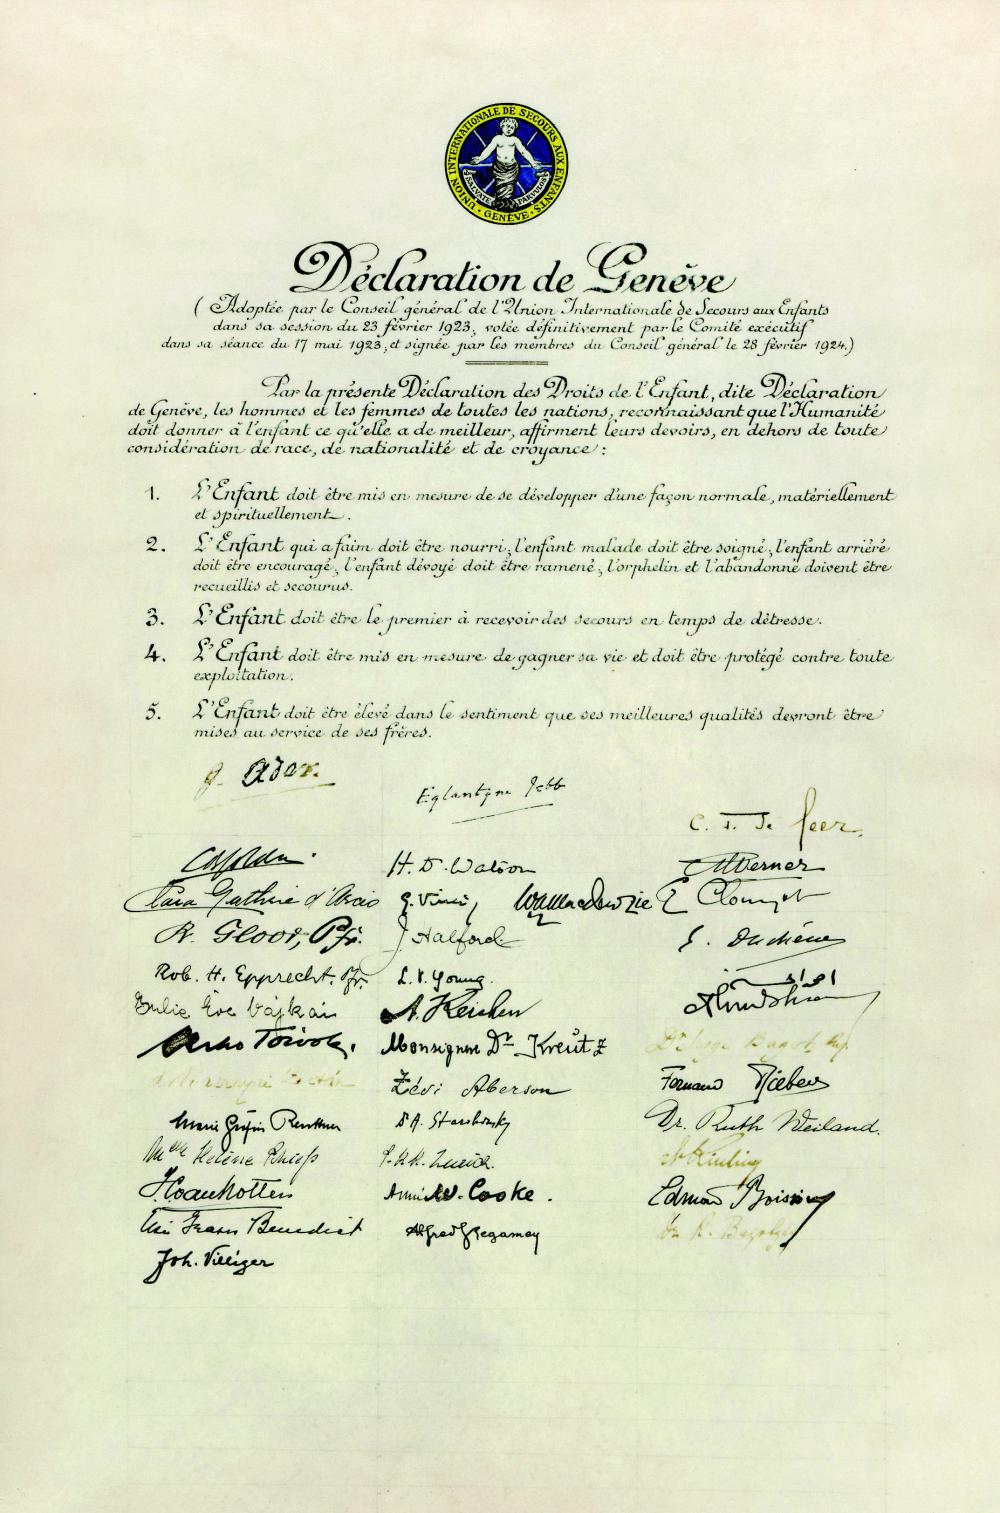 UNION INTERNATIONALE DE SECOURS AUX ENFANTS
SALVATE PARVULOS
· GENÈVE ·
Déclaration de Genève
( Adoptée par le Conseil général de l'Union Internationale de Secours aux Enfants
dans sa session du 23 février 1923, votée définitivement par le Comité exécutif
dans sa séance du 17 mai 1923, et signée par les membres du Conseil général le 28 février 1924.)
Par la présente Déclaration des Droits de l'Enfant, dite Déclaration
de Genève, les hommes et les femmes de toutes les nations, reconnaissant que l'Humanité
doit donner à l'enfant ce qu'elle a de meilleur, affirment leurs devoirs, en dehors de toute
considération de race, de nationalité et de croyance :
1. L'Enfant doit être mis en mesure de se développer d'une façon normale, matériellement
et spirituellement.
2. L'Enfant qui a faim doit être nourri; l'enfant malade doit être soigné; l'enfant arriéré
doit être encouragé; l'enfant dévoyé doit être ramené; l'orphelin et l'abandonné doivent être
recueillis et secourus.
3. L'Enfant doit être le premier à recevoir des secours en temps de détresse.
4. L'Enfant doit être mis en mesure de gagner sa vie et doit être protégé contre toute
exploitation.
5. L'Enfant doit être élevé dans le sentiment que ses meilleures qualités devront être
mises au service de ses frères.
G. Ador.
Eglantyne Jebb
H. D. Watson
Werner
Clara Guthrie d'Arcis
Clouzot
R. Gloor, Pfr.
J. Halford
Rob. H. Epprecht. Pfr.
L. V. Young.
Julie Eve Vajkai
Monsignore Dr. Kreutz
Zévi Aberson
Fernand
Dr. Ruth Weiland.
Melle Hélène
Annie W. Cooke.
Edmond
Benedict
Alfred Regamey
Joh. Villiger